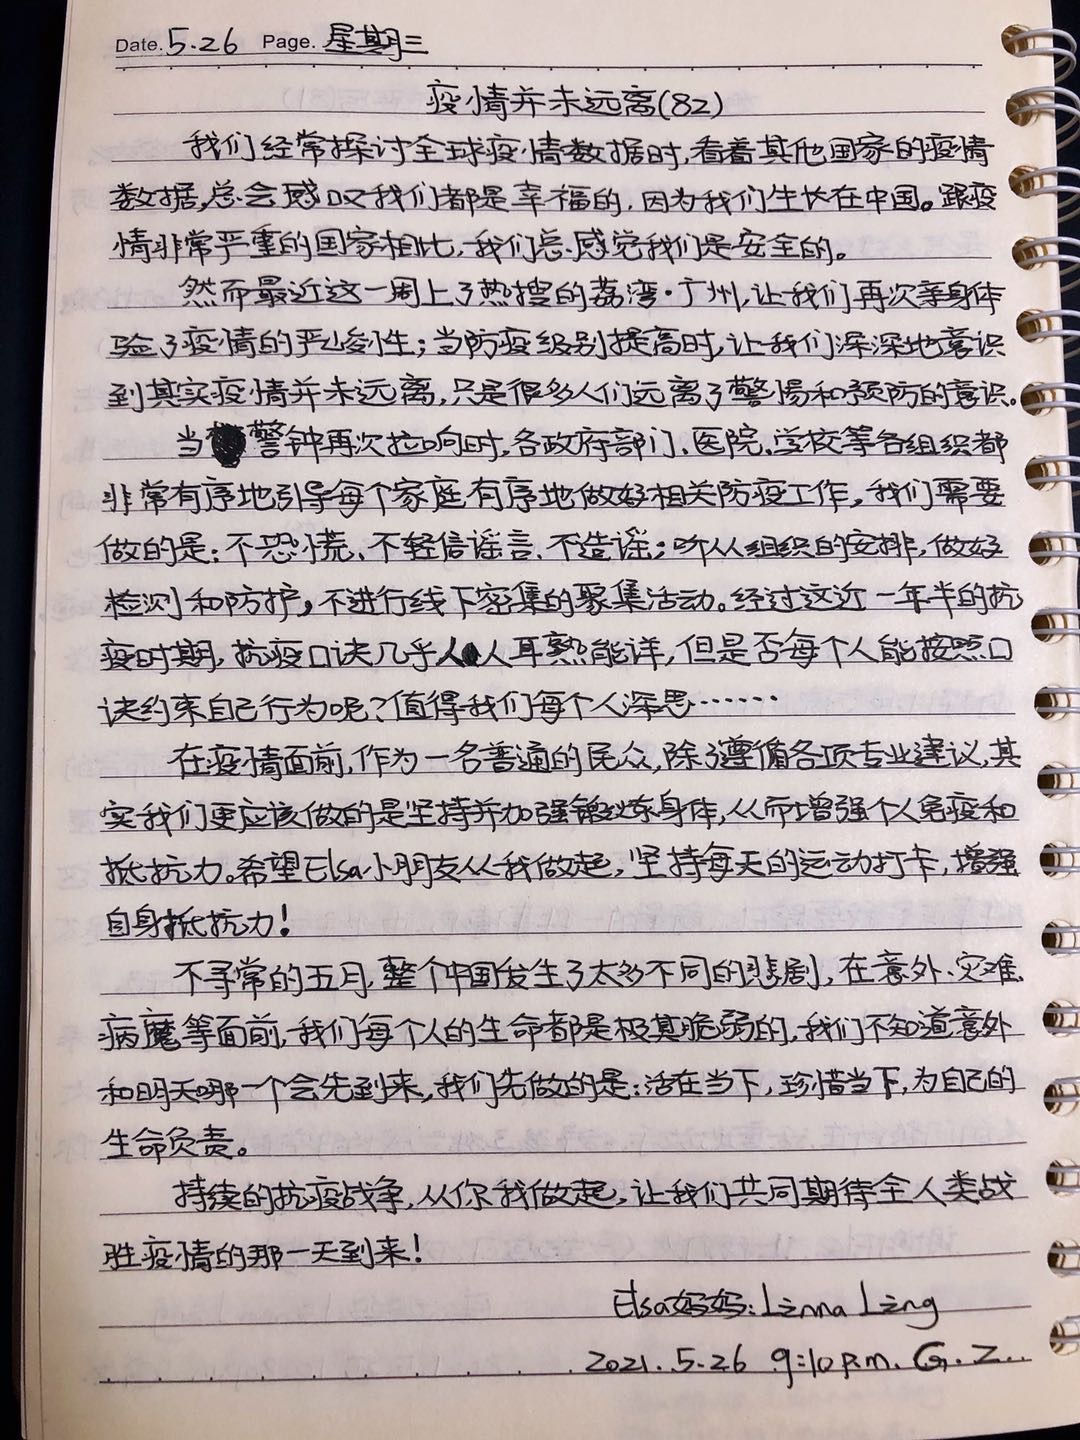 Date. 5.26 Page. 星期三
疫情并未远离(82)
我们经常探讨全球疫情数据时,看着其他国家的疫情
数据,总会感叹我们都是幸福的,因为我们生长在中国。跟疫
情非常严重的国家相比,我们总感觉我们是安全的。
然而最近这一周上了热搜的荔湾·广州,让我们再次亲身体
验了疫情的严峻性;当防疫级别提高时,让我们深深地意识
到其实疫情并未远离,只是很多人们远离了警惕和预防的意识。
当警钟再次拉响时,各政府部门、医院、学校等各组织都
非常有序地引导每个家庭有序地做好相关防疫工作,我们需要
做的是:不恐慌、不轻信谣言、不造谣;听从组织的安排,做好
检测和防护,不进行线下密集的聚集活动。经过这近一年半的抗
疫时期,抗疫口诀几乎人人耳熟能详,但是否每个人能按照口
诀约束自己行为呢?值得我们每个人深思……
在疫情面前,作为一名普通的民众,除了遵循各项专业建议,其
实我们更应该做的是坚持并加强锻炼身体,从而增强个人免疫和
抵抗力。希望Elsa小朋友从我做起,坚持每天的运动打卡,增强
自身抵抗力!
不寻常的五月,整个中国发生了太多不同的悲剧,在意外、灾难、
病魔等面前,我们每个人的生命都是极其脆弱的,我们不知道意外
和明天哪一个会先到来,我们先做的是:活在当下,珍惜当下,为自己的
生命负责。
持续的抗疫战争,从你我做起,让我们共同期待全人类战
胜疫情的那一天到来!
Elsa妈妈:Linna Ling
2021.5.26 9:10 p.m. G.Z.